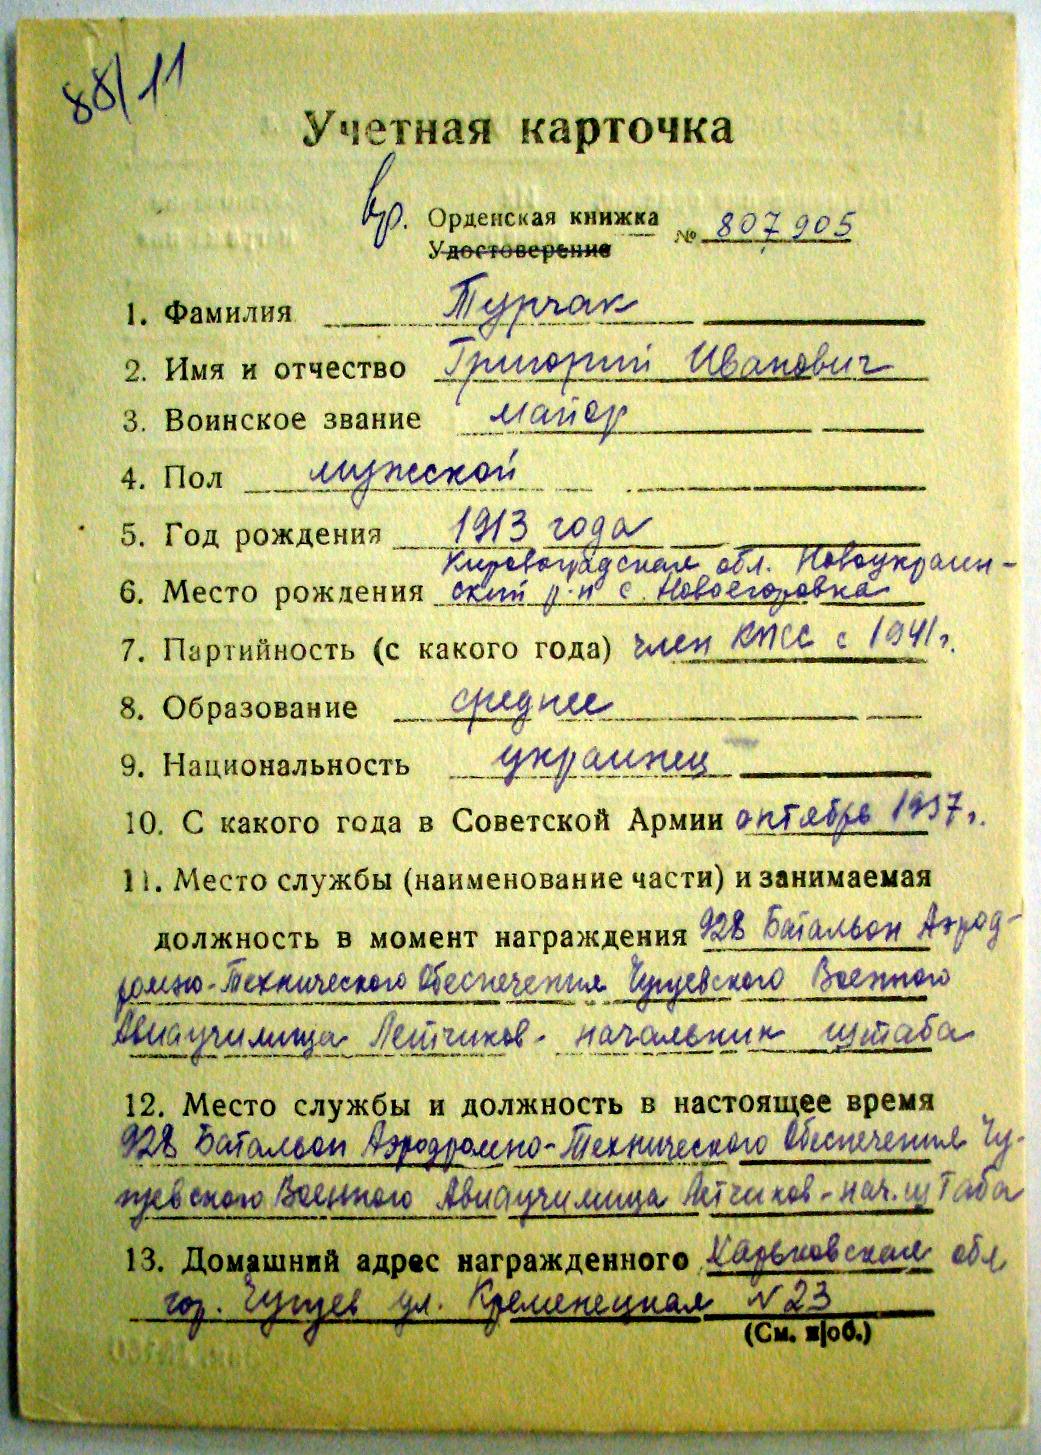 88/11
Учетная карточка
вр. Орденская книжка
Удостоверение № 807905
1. Фамилия Турчак
2. Имя и отчество Григорий Иванович
3. Воинское звание майор
4. Пол мужской
5. Год рождения 1913 года
Кировоградская обл. Новоукраин-
6. Место рождения ский р-н с. Новоегоровка
7. Партийность (с какого года) член КПСС с 1941 г.
8. Образование среднее
9. Национальность украинец
10. С какого года в Советской Армии октябрь 1937 г.
11. Место службы (наименование части) и занимаемая
должность в момент награждения 928 Батальон Аэрод-
ромно-Технического Обеспечения Чугуевского Военного
Авиаучилища Летчиков - начальник штаба
12. Место службы и должность в настоящее время
928 Батальон Аэродромно-Технического Обеспечения Чу-
гуевского Военного Авиаучилища Летчиков - нач. штаба
13. Домашний адрес награжденного Харьковская обл
гор. Чугуев ул. Кременецкая N 23
(См. н/об.)